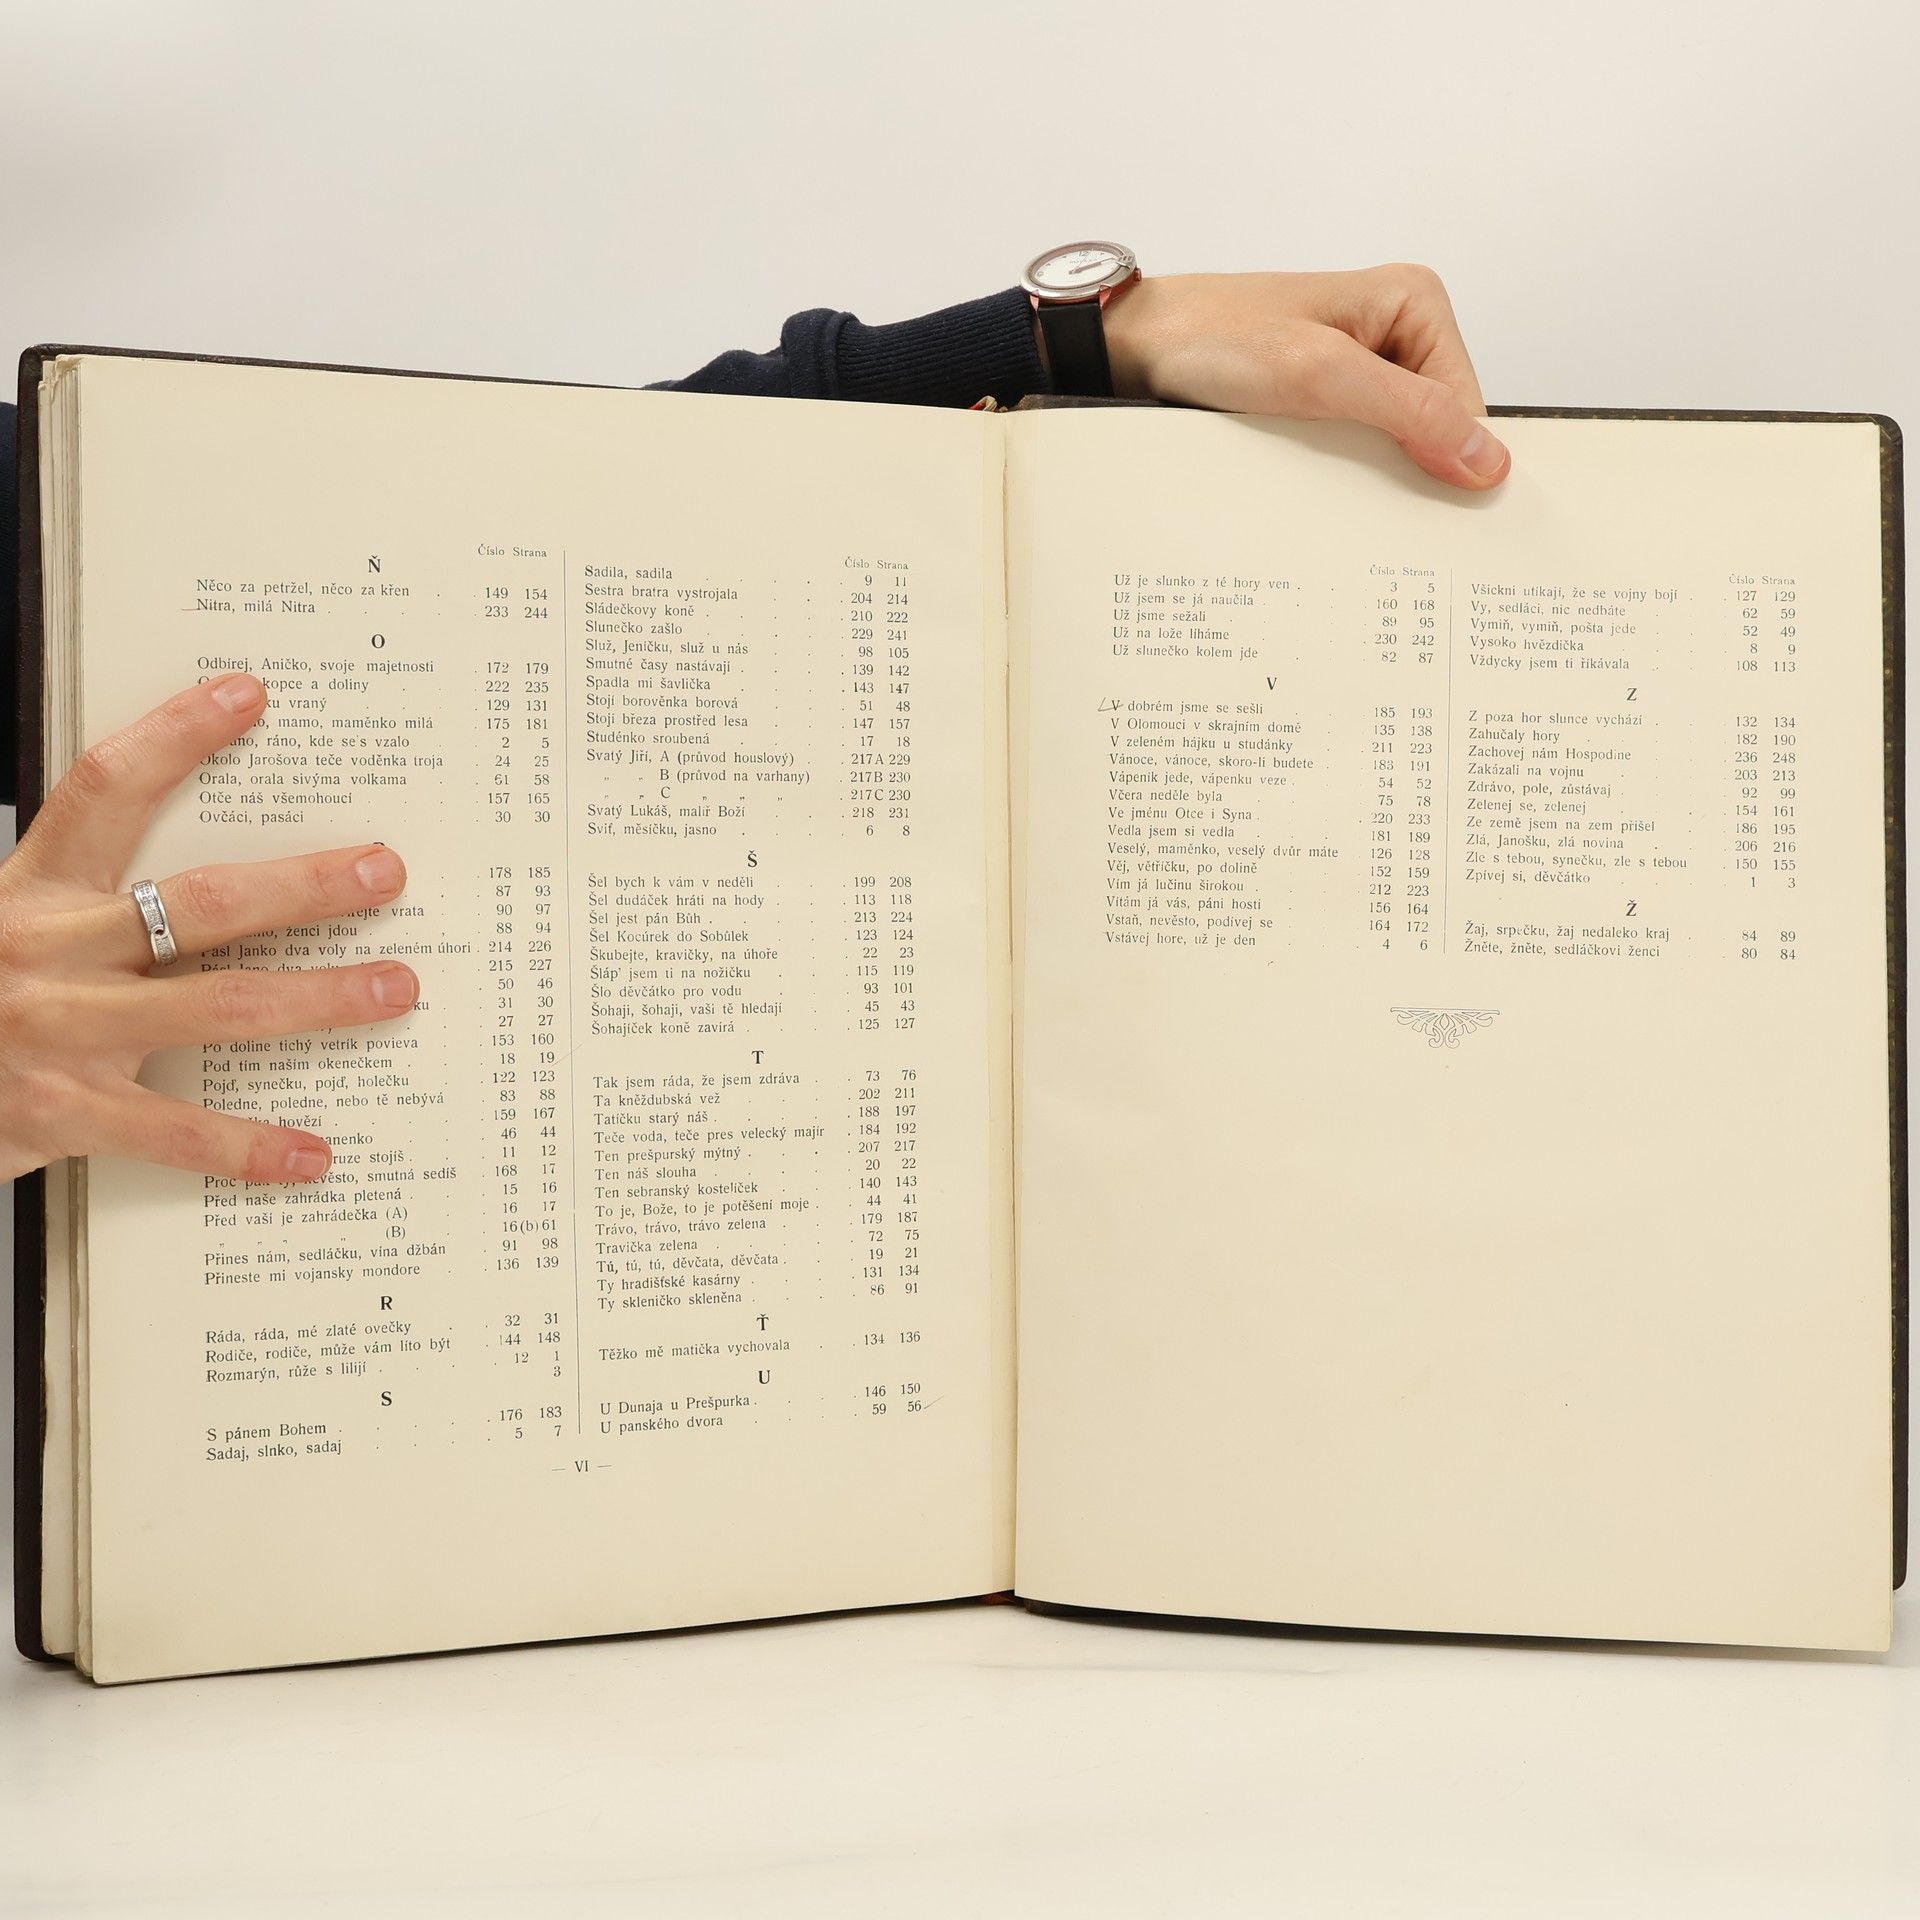 Číslo Strana
Ň
Něco za petržel, něco za křen . . 149 154
Nitra, milá Nitra . . . . 233 244
O
Odbírej, Aničko, svoje majetnosti . 172 179
kopce a doliny . . 222 235
vraný . . . 129 131
mamo, maměnko milá . 175 181
ráno, kde se's vzalo . . 2 5
Okolo Jarošova teče voděnka troja . 24 25
Orala, orala sivýma volkama . . 61 58
Otče náš všemohoucí . . . . 157 165
Ovčáci, pasáci . . . . 30 30
178 185
87 93
vrata . . 90 97
ženci jdou . . . . 88 94
Pásl Janko dva voly na zeleném úhori . 214 226
215 227
. 50 46
. 31 30
. 27 27
Po doline tichý vetrík povieva . . 153 160
Pod tím naším okenečkem . . . 18 19
Pojď, synečku, pojď, holečku . . 122 123
Poledne, poledne, nebo tě nebývá . 83 88
hovězí . . . . . 159 167
. . 46 44
stojíš . . . 11 12
nevěsto, smutná sedíš . 168 17
Před naše zahrádka pletená . . . 15 16
Před vaší je zahrádečka (A) . . 16 17
„ „ „ „ (B) . . 16(b) 61
Přines nám, sedláčku, vína džbán . 91 98
Přineste mi vojansky mondore . . 136 139
R
Ráda, ráda, mé zlaté ovečky . . 32 31
Rodiče, rodiče, může vám líto být . 144 148
Rozmarýn, růže s lilijí . . . . 12 1
3
S
S pánem Bohem . . . . . 176 183
Sadaj, slnko, sadaj . . . . 5 7
Číslo Strana
Sadila, sadila . . . . . 9 11
Sestra bratra vystrojala . . . 204 214
Sládečkovy koně . . . . . 210 222
Slunečko zašlo . . . . . 229 241
Služ, Jeníčku, služ u nás . . . 98 105
Smutné časy nastávají . . . . 139 142
Spadla mi šavlička . . . . 143 147
Stojí borověnka borová . . . 51 48
Stojí březa prostřed lesa . . . 147 157
Studénko sroubená . . . . 17 18
Svatý Jiří, A (průvod houslový) . . 217 A 229
„ „ B (průvod na varhany) . 217 B 230
„ „ C „ „ „ . 217 C 230
Svatý Lukáš, malíř Boží . . . 218 231
Sviť, měsíčku, jasno . . . . 6 8
Š
Šel bych k vám v neděli . . . 199 208
Šel dudáček hráti na hody . . . 113 118
Šel jest pán Bůh . . . . . 213 224
Šel Kocúrek do Sobůlek . . . 123 124
Škubejte, kravičky, na úhoře . . 22 23
Šláp' jsem ti na nožičku . . . 115 119
Šlo děvčátko pro vodu . . . 93 101
Šohaji, šohaji, vaši tě hledají . . 45 43
Šohajíček koně zavírá . . . . 125 127
T
Tak jsem ráda, že jsem zdráva . . 73 76
Ta kněždubská vež . . . . 202 211
Tatíčku starý náš . . . . . 188 197
Teče voda, teče pres velecký majír . 184 192
Ten prešpurský mýtný . . . . 207 217
Ten náš slouha . . . . . 20 22
Ten sebranský kostelíček . . . 140 143
To je, Bože, to je potěšení moje . . 44 41
Trávo, trávo, trávo zelena . . . 179 187
Travička zelena . . . . . 72 75
Tú, tú, tú, děvčata, děvčata . . . 19 21
Ty hradišťské kasárny . . . . 131 134
Ty skleničko skleněna . . . . 86 91
Ť
Těžko mě matička vychovala . . 134 136
U
U Dunaja u Prešpurka . . . . 146 150
U panského dvora . . . . 59 56
— VI —
Číslo Strana
Už je slunko z té hory ven . . . 3 5
Už jsem se já naučila . . . 160 168
Už jsme sežali . . . . 89 95
Už na lože líháme . . . 230 242
Už slunečko kolem jde . . . 82 87
V
V dobrém jsme se sešli . . . 185 193
V Olomouci v skrajním domě . . 135 138
V zeleném hájku u studánky . . 211 223
Vánoce, vánoce, skoro-li budete . . 183 191
Vápeník jede, vápenku veze . . . 54 52
Včera neděle byla . . . . 75 78
Ve jménu Otce i Syna . . . . 220 233
Vedla jsem si vedla . . . . 181 189
Veselý, maměnko, veselý dvůr máte . 126 128
Věj, větříčku, po dolině . . . 152 159
Vím já lučinu širokou . . . . 212 223
Vítám já vás, páni hosti . . . 156 164
Vstaň, nevěsto, podívej se . . . 164 172
Vstávej hore, už je den . . . 4 6
Číslo Strana
Všickni utíkají, že se vojny bojí . . 127 129
Vy, sedláci, nic nedbáte . . . 62 59
Vymiň, vymiň, pošta jede . . . 52 49
Vysoko hvězdička . . . . 8 9
Vždycky jsem ti říkávala . . . 108 113
Z
Z poza hor slunce vychází . . . 132 134
Zahučaly hory . . . . . 182 190
Zachovej nám Hospodine . . . 236 248
Zakázali na vojnu . . . . 203 213
Zdrávo, pole, zůstávaj . . . . 92 99
Zelenej se, zelenej . . . . 154 161
Ze země jsem na zem přišel . . 186 195
Zlá, Janošku, zlá novina . . . 206 216
Zle s tebou, synečku, zle s tebou . 150 155
Zpívej si, děvčátko . . . . 1 3
Ž
Žaj, srpečku, žaj nedaleko kraj . . 84 89
Žněte, žněte, sedláčkovi ženci . . 80 84